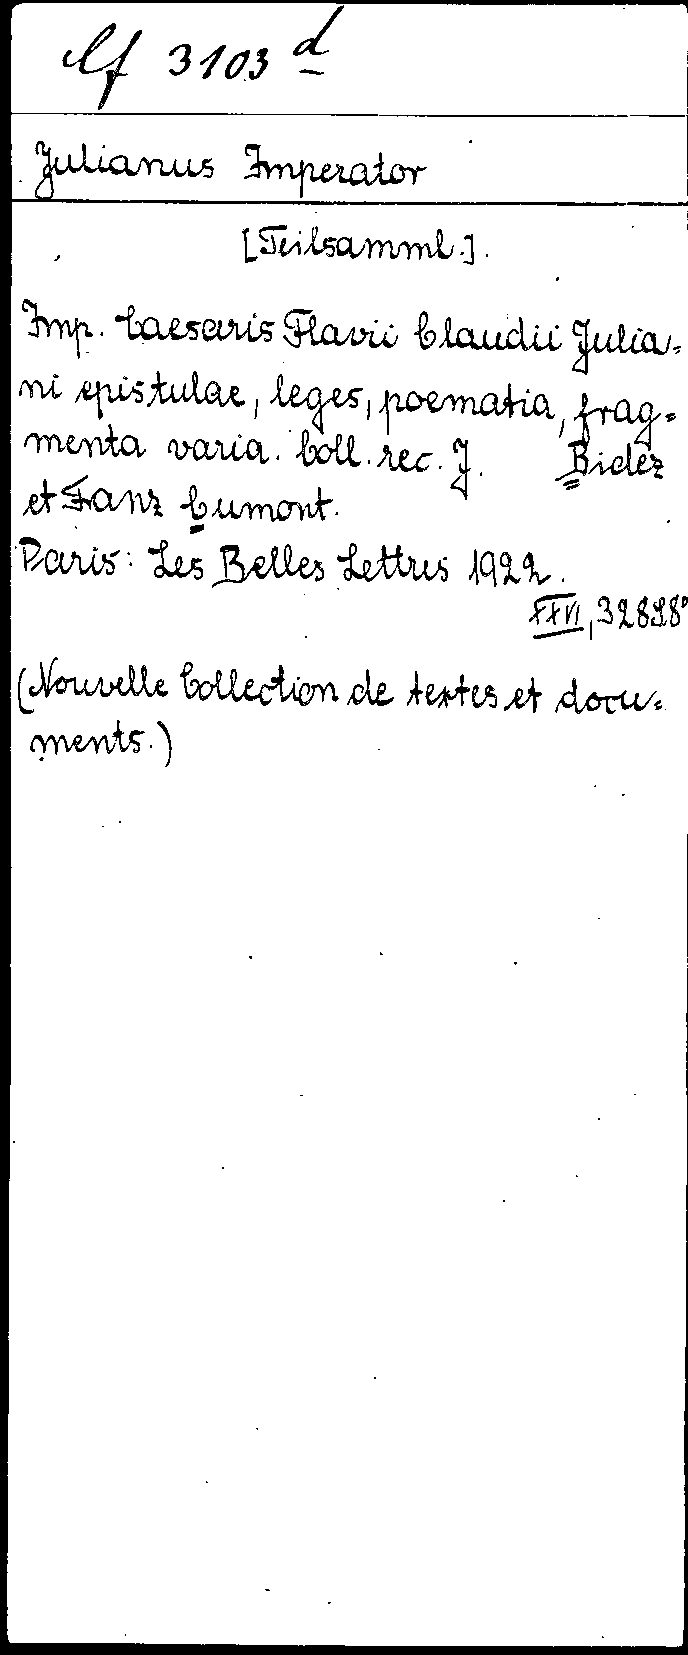 Cf 3103 d
Julianus Imperator
[Teilsamml.].
Imp. Caesaris Flavii Claudii Julia=
ni epistulae, leges, poematia, frag=
menta varia. Coll. rec. J. Bidez
et Fanz Cumont.
Paris: Les Belles Lettres 1922.
XXVI, 328 S. 8°
(Nouvelle Collection de textes et docu=
ments.)